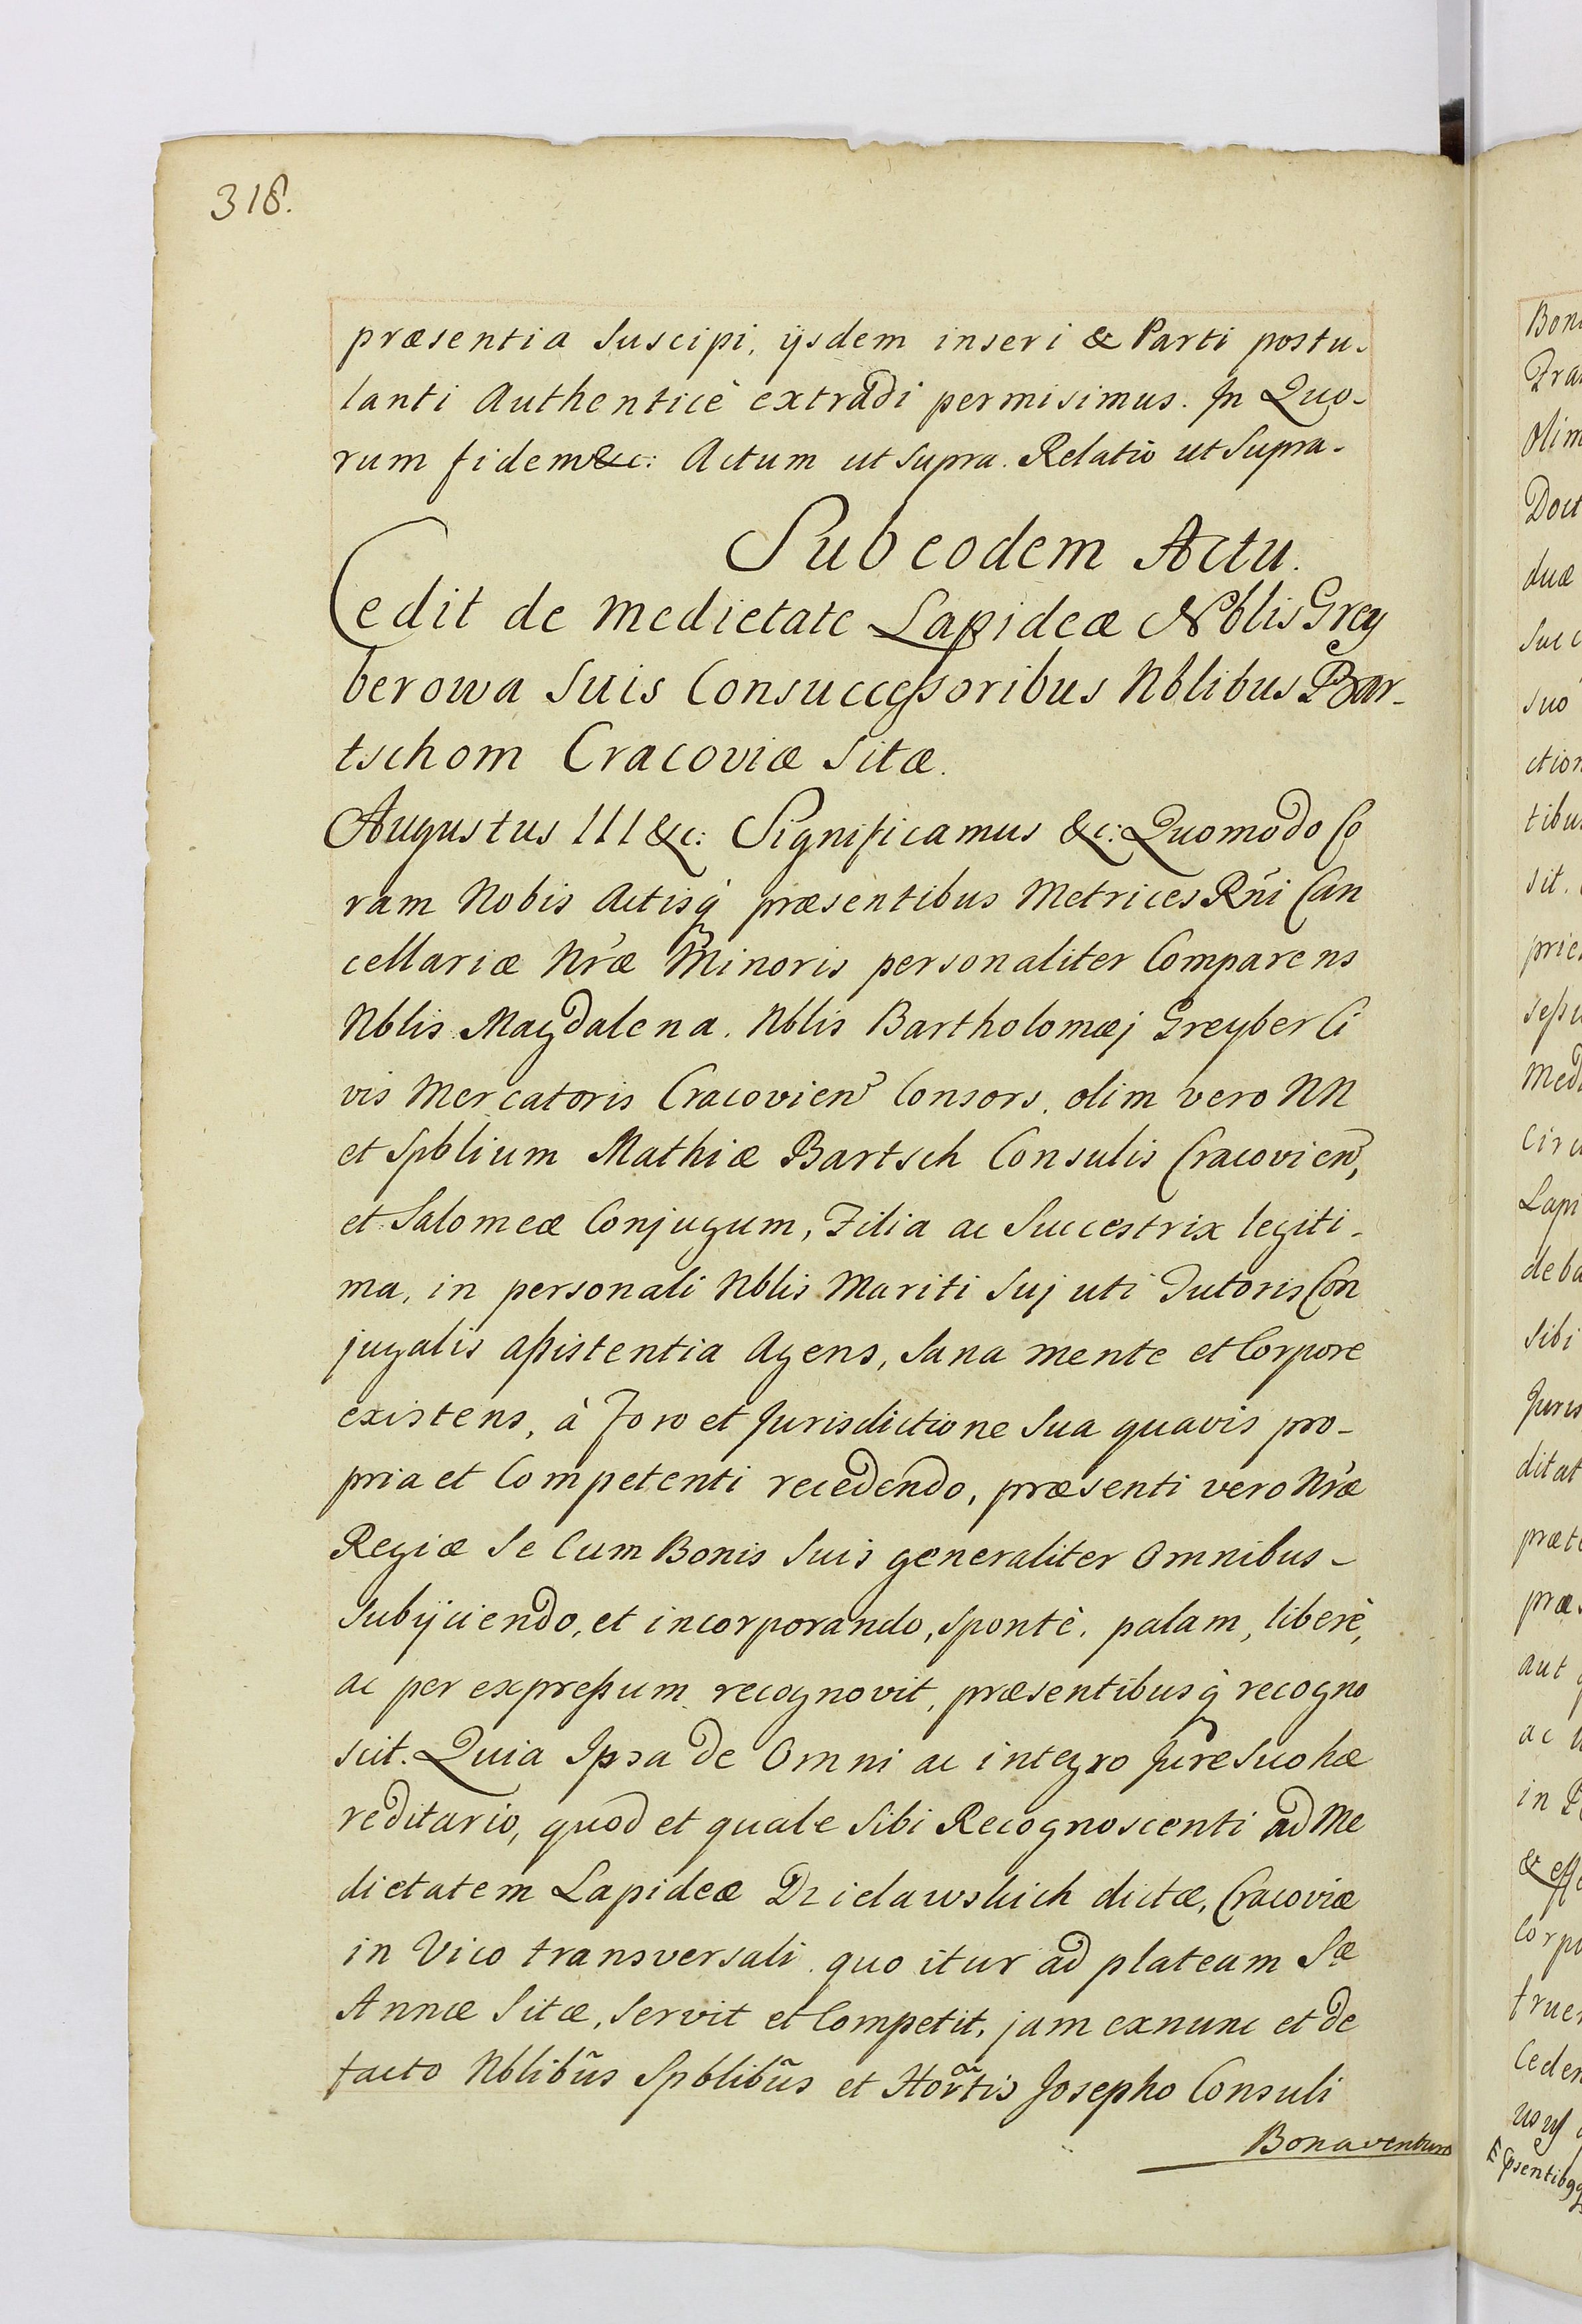 318.
præsentia suscipi, ijsdem inseri & Parti postu-
lanti Authenticè extradi permisimus. In Quo-
rum fidem &c: Actum ut supra. Relatio ut supra.
Sub eodem Actu.
Cedit de medietate Lapideæ Nblis Grey
berowa suis Consuccessoribus Nblibus Bar-
tschom Cracoviæ sitæ.
Augustus III &c: Significamus &c: Quomodo Co
ram Nobis Actisq̀ præsentibus Metrices Rñi Can
cellariæ Nr̃æ Minoris personaliter Comparens
Nblis Magdalena, Nblis Bartholomæj Greyber Ci
vis Mercatoris Cracovien̄ Consors, olim vero NN
et Spblium Mathiæ Bartsch Consulis Cracovien̄,
et Salomeæ Conjugum, Filia ac Succestrix legiti-
ma, in personali Nblis Mariti Suj uti Tutoris Con
jugalis assistentia Agens, Sana mente et Corpore
existens, à Foro et Jurisdictione Sua quavis pro-
pria et Competenti recedendo, præsenti vero Nr̃æ
Regiæ Se Cum Bonis Suis generaliter Omnibus-
Subijciendo, et incorporando, spontè, palam, liberè,
ac per expressum recognovit, præsentibusq̀ recogno
scit. Quia Ipsa de Omni ac integro Jure Suo hæ
reditario, quod et quale Sibi Recognoscenti ad Me
dietatem Lapideæ Dzielawskich dictæ, Cracoviæ
in Vico transversali quo itur ad plateam Sæ
Annæ Sitæ, servit et Competit, jam exnunc et de
facto Nblibũs Spblibũs et Hor̃tis Josepho Consuli
Bonaventura
Boni
Fran
Olim
Doct
duæ
Succ
suo
ction
tibus
sit.
prie
sessu
Medi
Circu
Lapi
deba
sibi
Juris
ditat
præt
præ
aut
ac
in
& effe
Corpo
true
Ceden